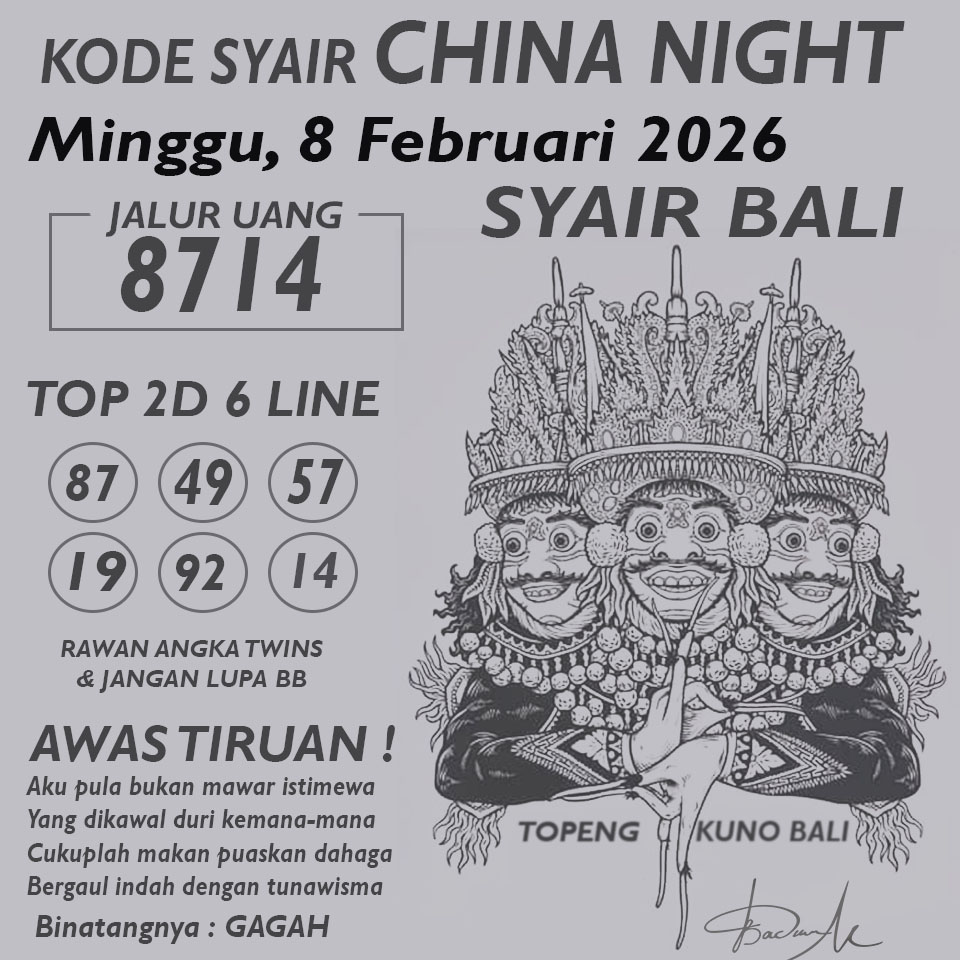 KODE SYAIR CHINA NIGHT
Minggu, 8 Februari 2026
SYAIR BALI
JALUR UANG
8714
TOP 2D 6 LINE
87 49 57
19 92 14
RAWAN ANGKA TWINS
& JANGAN LUPA BB
AWAS TIRUAN !
Aku pula bukan mawar istimewa
Yang dikawal duri kemana-mana
Cukuplah makan puaskan dahaga
Bergaul indah dengan tunawisma
Binatangnya : GAGAH
TOPENG KUNO BALI